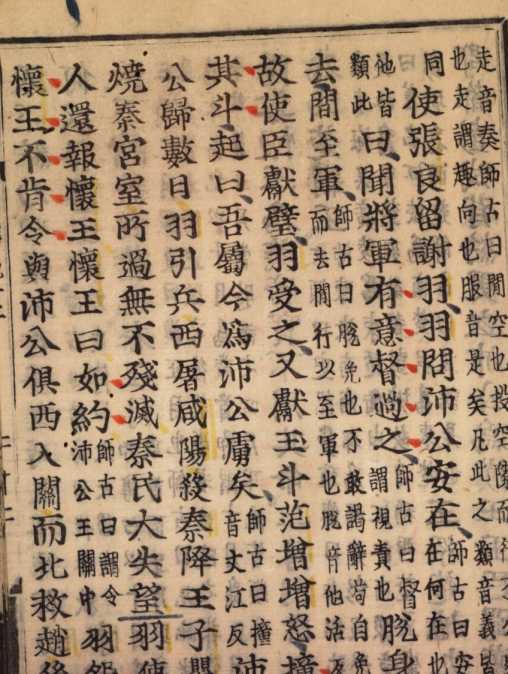 走音奏師古曰閒空也投空隙而行
也走謂趣向也服音是矣凡此之類音義皆
同使張良留謝羽羽問沛公安在師古曰安在何在也
他皆類此曰聞將軍有意督過之師古曰督謂視責也脫身
去間至軍師古曰脫免也不敢謁辭苟自免而去閒行以至軍也脫音他活反
故使臣獻璧羽受之又獻玉斗范增增怒撞
其斗起曰吾屬今爲沛公虜矣師古曰撞音丈江反沛
公歸數日羽引兵西屠咸陽殺秦降王子
燒秦宮室所過無不殘滅秦民大失望羽使
人還報懷王懷王曰如約師古曰謂令沛公王關中羽怨
懷王不肯令與沛公俱西入關而北救趙後